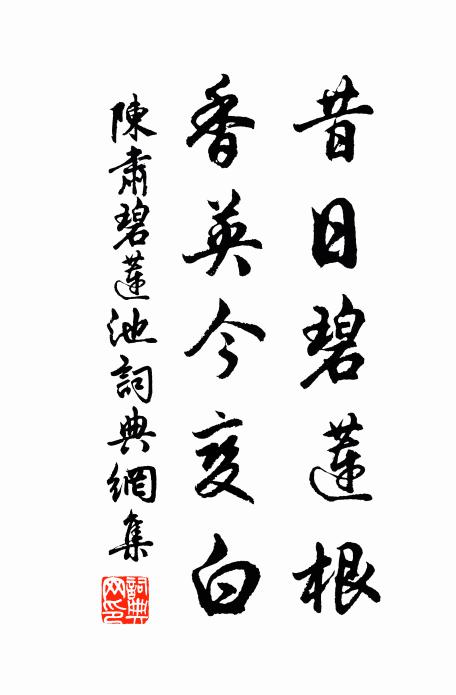 昔日碧蓮根
香英今变白
陳肅碧蓮池詞典網集
詞典网印